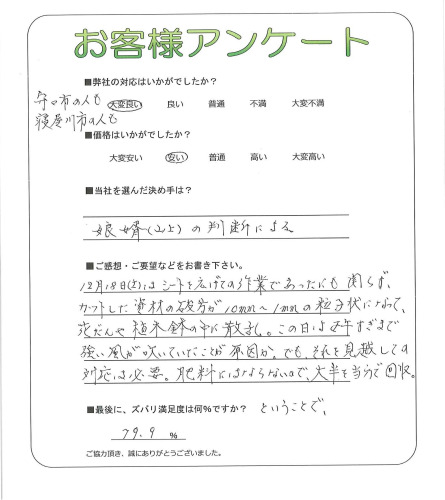 お客様アンケート
■弊社の対応はいかがでしたか?
守口市の人も
寝屋川市の人も
大変良い 良い 普通 不満 大変不満
■価格はいかがでしたか?
大変安い 安い 普通 高い 大変高い
■当社を選んだ決め手は?
娘婿(ムコ)の判断による
■ご感想・ご要望などをお書き下さい。
12月18日(土)はシートを広げての作業であったにも関らず、
カットした資材の破片が10mm〜1mmの粒子状になって、
花だんや植木鉢の中に散乱。この日は午すぎまで
強い風が吹いていたことが原因か。でも、それを見越しての
対応は必要。肥料にはならないので、大半を当方で回収。
■最後に、ズバリ満足度は何%ですか?
ということで、
79.9 %
ご協力頂き、誠にありがとうございました。